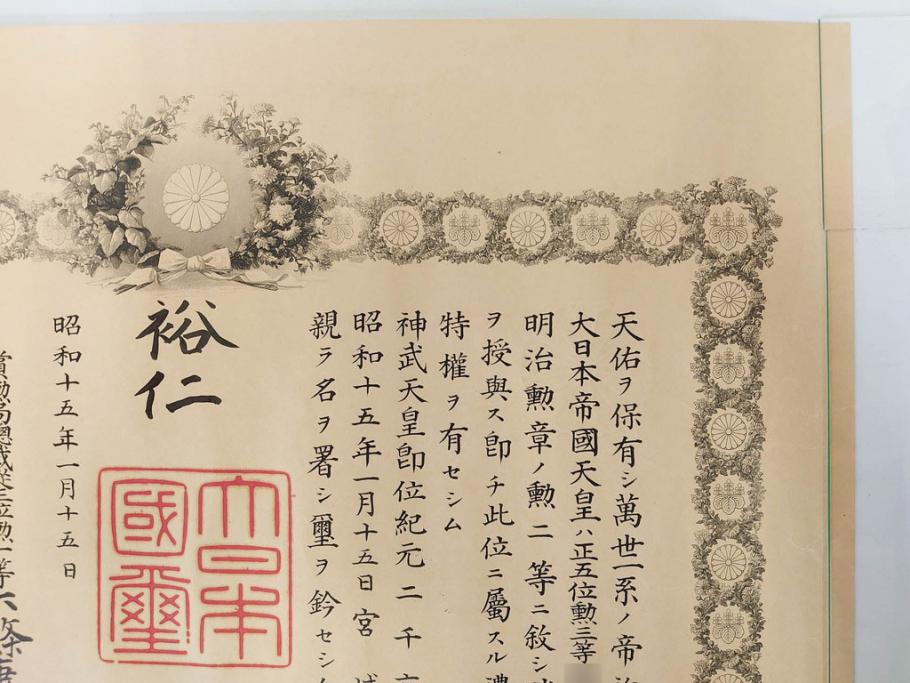 天佑ヲ保有シ萬世一系ノ帝
大日本帝國天皇ハ正五位勲三等
明治勲章ノ勲二等ニ敘シ
ヲ授與ス卽チ此位ニ屬スル
特權ヲ有セシム
神武天皇卽位紀元二千六
昭和十五年一月十五日宮
親ラ名ヲ署シ璽ヲ鈐セシ
裕仁
大日本
國璽
昭和十五年一月十五日
賞勲局總裁從三位勲一等